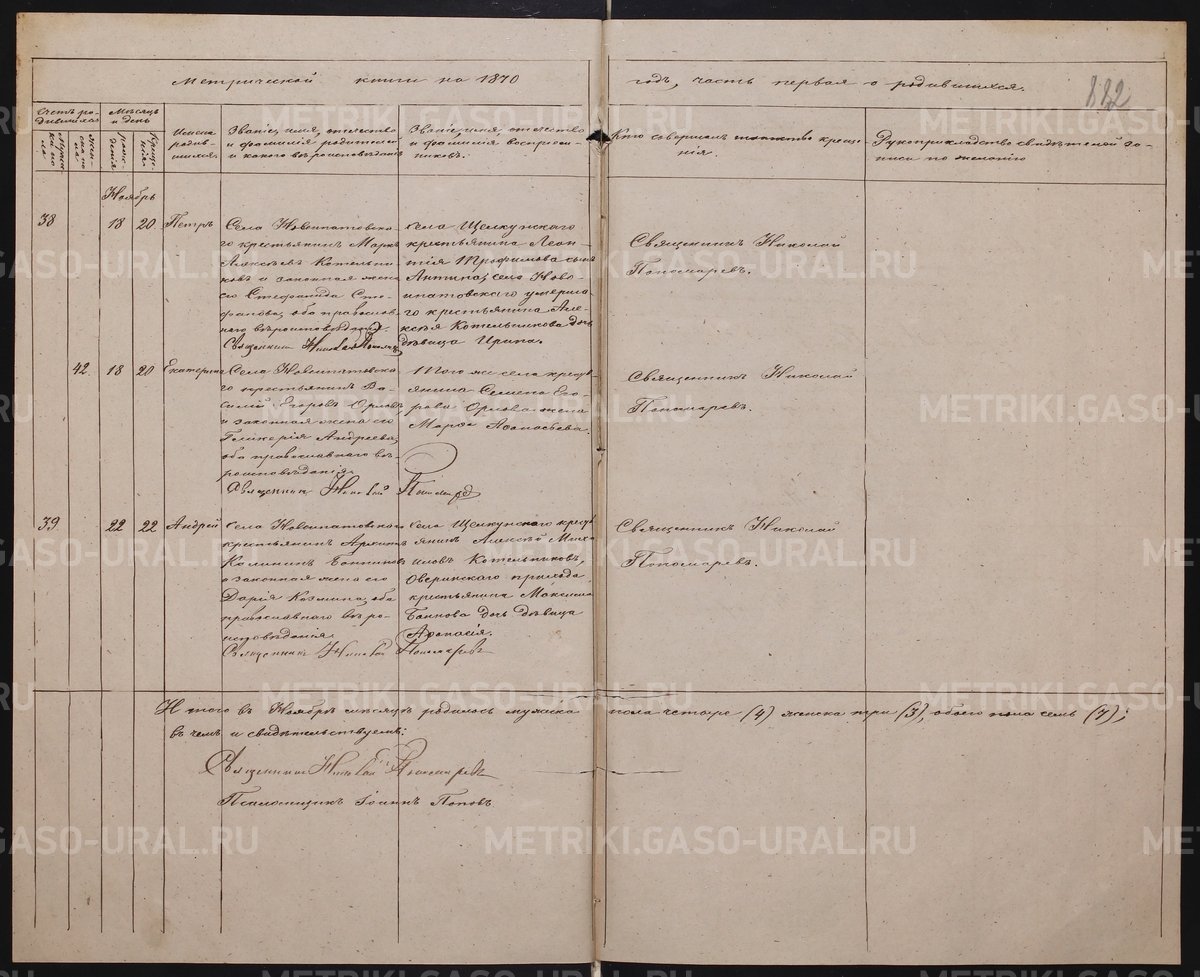 Метрической книги на 1870 годъ, часть первая о родившихся.
882
Счетъ родившихся
Мѣсяцъ и день
Мужеска пола
Женска
рожденія
Крещенія
Имена родившихся
Званіе, имя, отчество и фамилія родителей и какого вѣроисповѣданія
Званіе, имя, отчество и фамилія воспріемниковъ.
Кто совершалъ таинство крещенія.
Рукоприкладство свидѣтелей записи по желанію
Ноябрь
38 18 20 Петръ
Села Новоипатовска-
го крестьянинъ Маркъ
Алексѣевъ Котельни-
ковъ и законная жена
его Стефанида Сте-
фанова, оба православ-
наго вѣроисповѣд.
Священникъ Николай Пономаревъ
села Щелкунскаго
крестьянина Леон-
тія Трофимова сынъ
Антипа, села Ново-
ипатовскаго умерша-
го крестьянина Але-
ксѣя Котельникова дочь
дѣвица Ирина.
Священникъ Николай
Пономаревъ.
42 18 20 Екатерина
Села Новоипатовска-
го крестьянинъ Ва-
силій Егоровъ Орловъ
и законная жена его
Гликерія Андреева,
оба православнаго вѣ-
роисповѣданія.
Священникъ Николай Пономаревъ
Того же села кресть-
янина Семена Его-
рова Орлова жена
Марѳа
Священникъ Николай
Пономаревъ.
39 22 22 Андрей
Села Новоипатовскаго
крестьянинъ
Калининъ
и законная жена его
Дарія Козмина, оба
православнаго вѣро-
исповѣданія.
Священникъ Николай Пономаревъ
села Щелкунскаго кресть-
янинъ Алексѣй Миха-
иловъ Котельниковъ,
Аверинскаго прихода
крестьянина Максима
дочь дѣвица
Аѳанасія.
Священникъ Николай
Пономаревъ.
Итого въ Ноябрѣ мѣсяцѣ родилось мужска пола четыре (4) женска три (3), обоего пола семь (7);
въ чемъ и свидѣтельствуемъ:
Священникъ Николай Пономаревъ
Псаломщикъ Іоаннъ Поповъ
METRIKI.GASO-URAL.RU